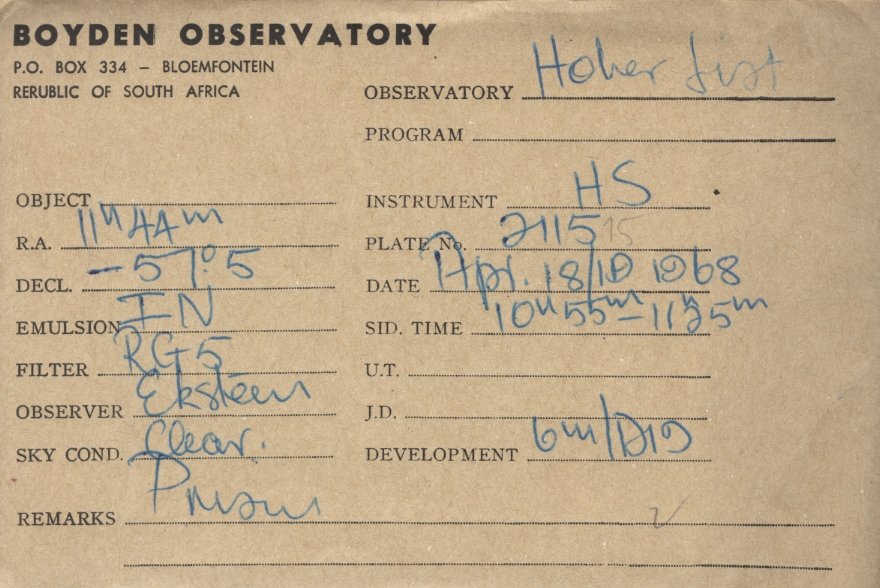 BOYDEN OBSERVATORY
P.O. BOX 334 – BLOEMFONTEIN
RERUBLIC OF SOUTH AFRICA
OBSERVATORY Hoher List
PROGRAM
OBJECT
INSTRUMENT HS
R.A. 11h 44m
PLATE No. 2115 15
DECL. -57°.5
DATE Apr. 18/19 1968
EMULSION IN
SID. TIME 10h 55m – 11h 25m
FILTER RG5
U.T.
OBSERVER Eksteen
J.D.
SKY COND. Clear.
DEVELOPMENT 6m/D19
REMARKS Prism